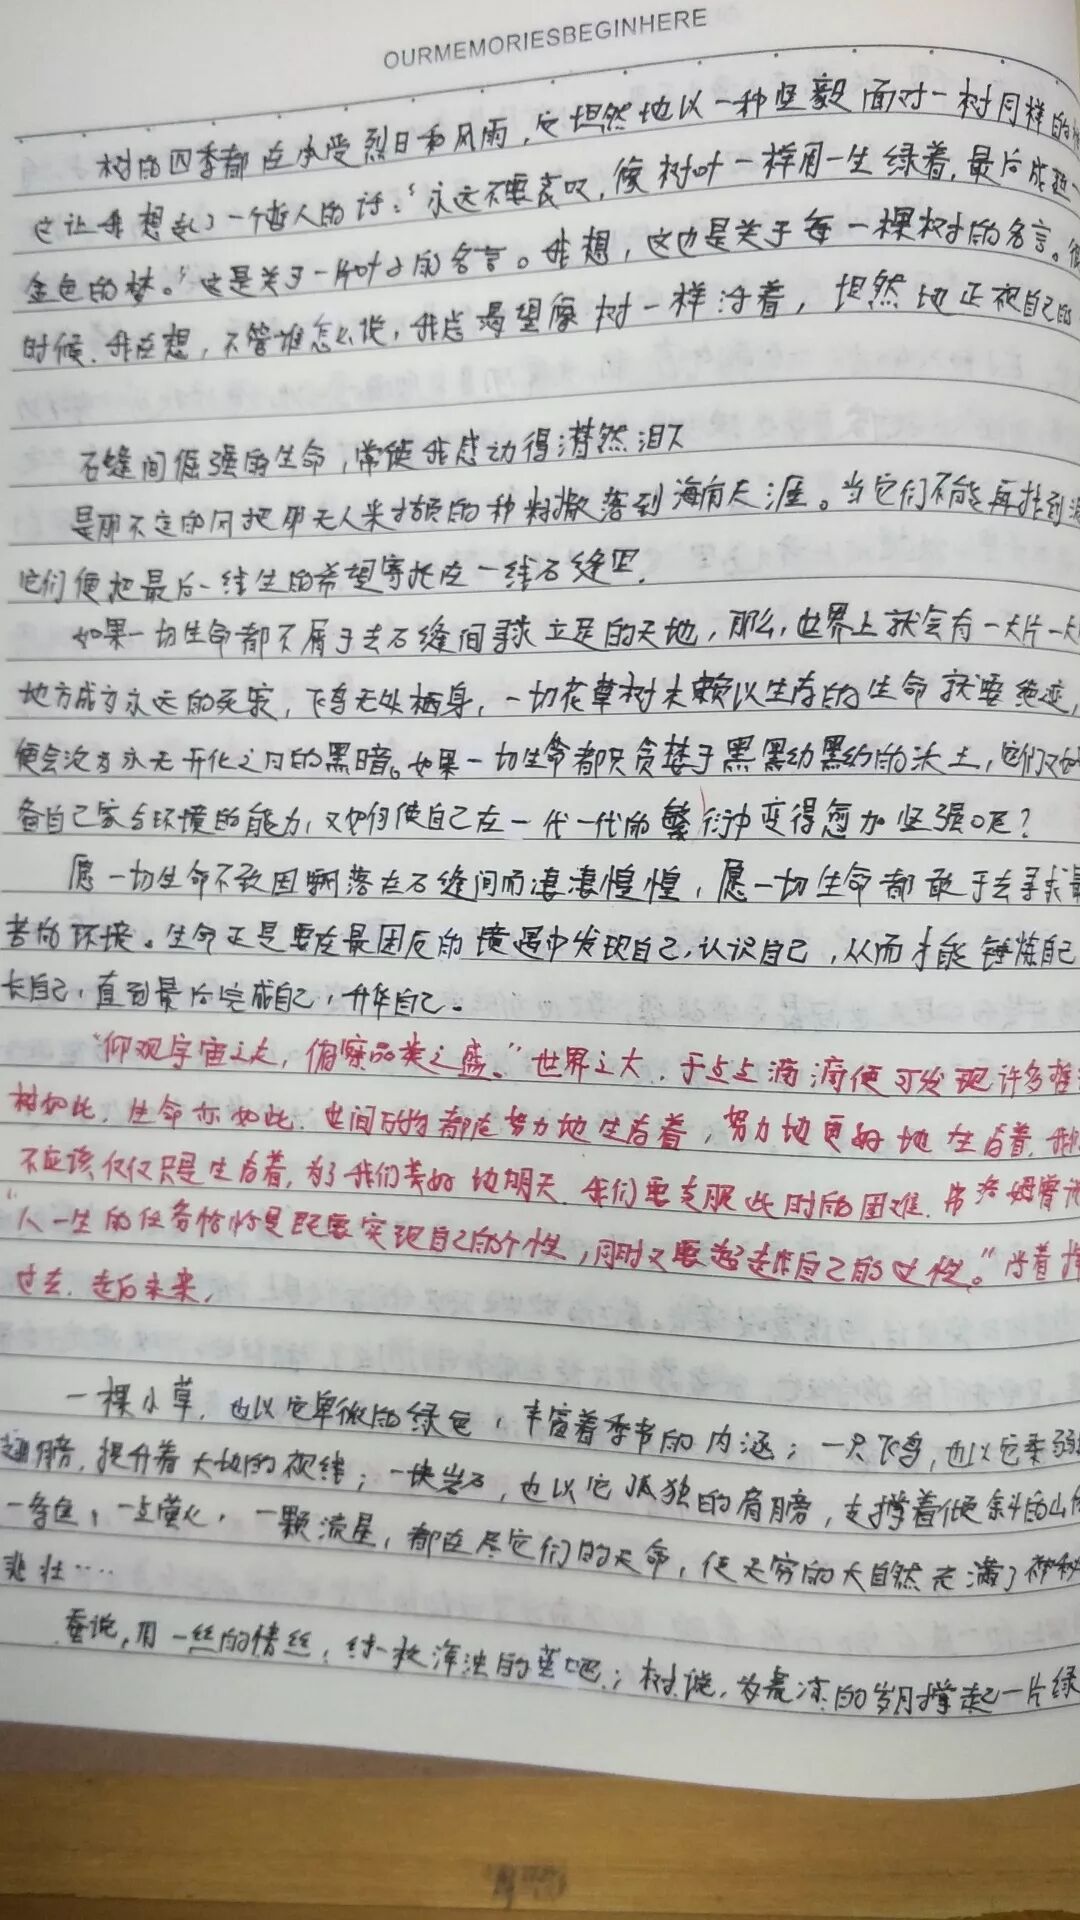 OURMEMORIESBEGINHERE
树的四季都在承受烈日和风雨，它坦然地以一种坚毅面对一树同样的
这让我想起了一个哲人的话：“永远不要哀叹，像树叶一样用一生绿着，最后成
金色的梦。”这是关于一片叶子的名言。我想，这也是关于每一棵树的名言。
时候，我在想，不管谁怎么说，我总渴望像树一样活着，坦然地正视自己的
石缝间倔强的生命，常使我感动得潸然泪下
是那不定的风把那无人采撷的种籽撒落到海角天涯。当它们不能再找到
它们便把最后一线生的希望寄托在一线石缝里.
如果一切生命都不屑于去石缝间寻求立足的天地，那么，世界上就会有一大片一大
地方成为永远的死寂，飞鸟无处栖身，一切花草树木赖以生存的生命就要绝迹，
便会沦为永无开化之日的黑暗。如果一切生命都只贪婪于黑黝黝的沃土，它们又如
备自己家与环境的能力，又如何使自己在一代一代的繁衍中变得愈加坚强呢？
愿一切生命不致因飘落在石缝间而凄凄惶惶，愿一切生命都敢于去寻求最
苦的环境。生命正是要在最困厄的境遇中发现自己，认识自己，从而才能锤炼自己
长自己，直到最后完成自己，升华自己。
“仰观宇宙之大，俯察品类之盛。”世界之大，于点点滴滴便可发现许多哲
树如此，生命亦如此，世间万物都在努力地生存着，努力地更好地生存着，我
不应该仅仅只是生存着，为了我们美好地明天，我们要克服此时的困难，弗洛姆曾
“人一生的任务恰恰是既要实现自己的个性，同时又要超越自己的个性。”
过去，走向未来，
一棵小草，也以它卑微的绿色，丰富着季节的内涵；一只飞鸟，也以它柔弱
翅膀，提升着大地的视线；一块岩石，也以它孤独的肩膀，支撑着倾斜的山
一点萤火，一颗流星，都在尽它们的天命，使无穷的大自然充满了神秘
悲壮····
蚕说，用一丝的情丝，结一枚浑浊的茧吧；树说，为荒凉的岁月撑起一片绿